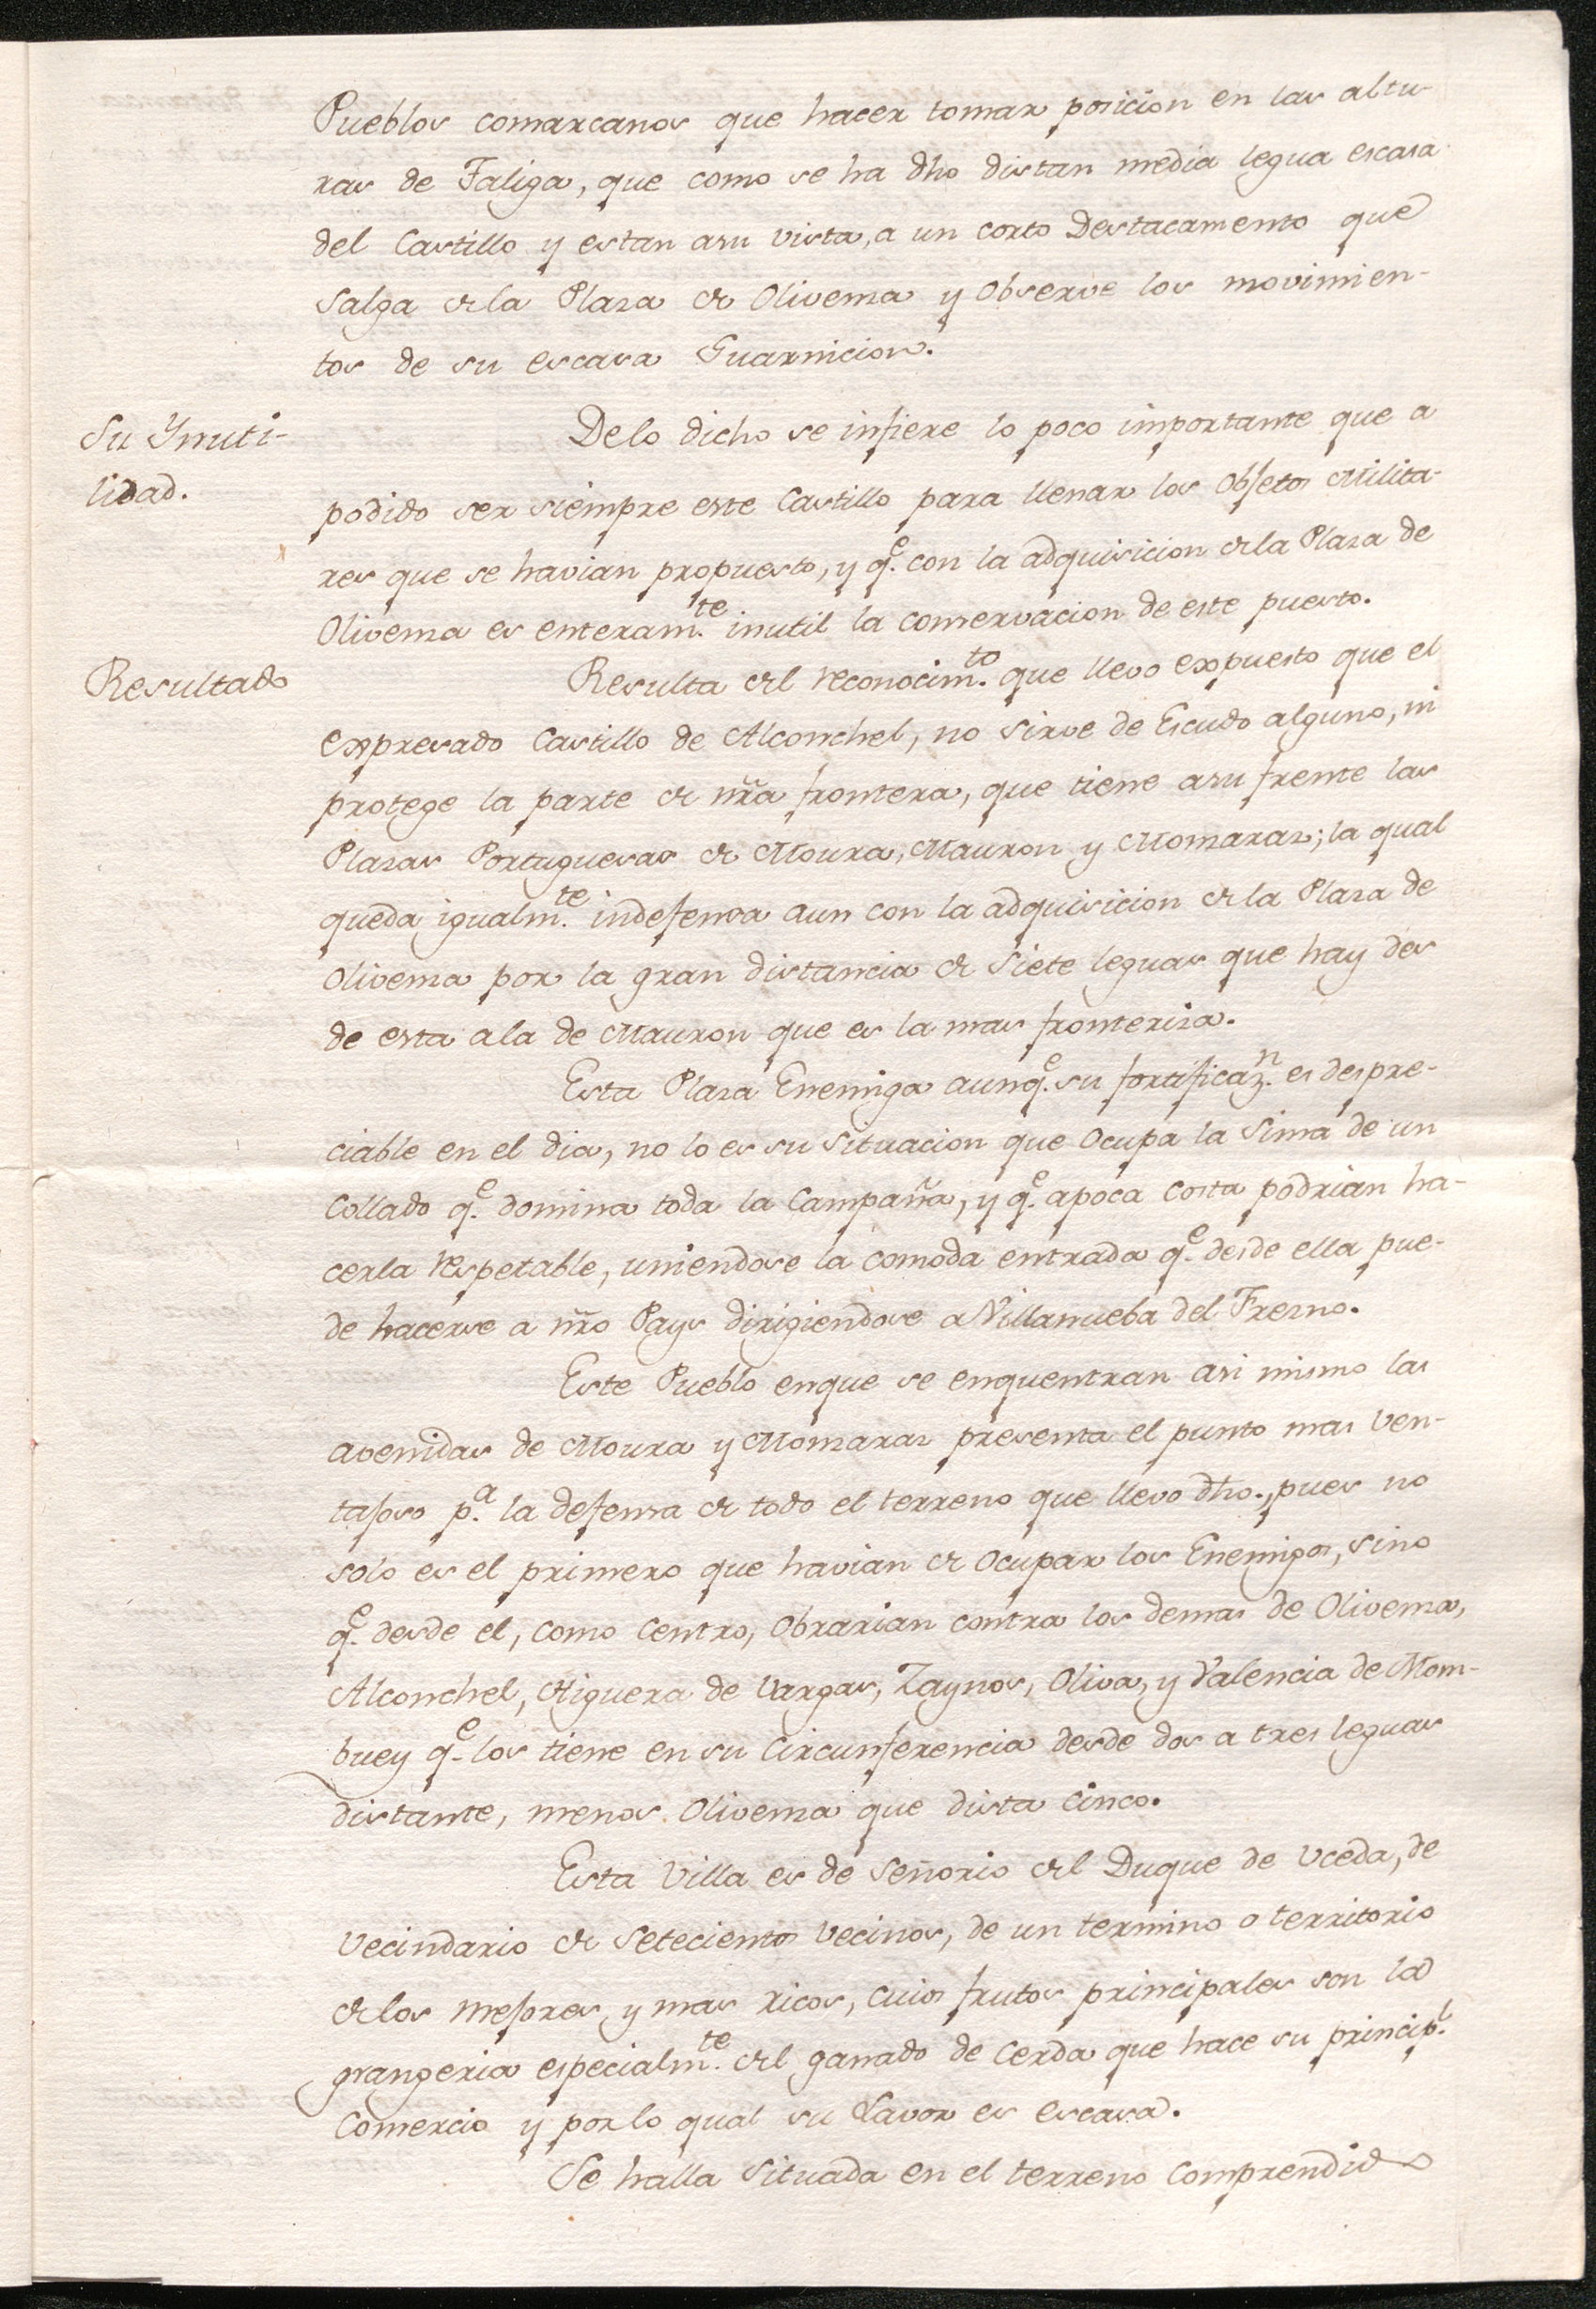 Pueblos comarcanos que hacer tomar posicion en las altu-
ras de Faliga, que como se ha dho distan media legua escasa
del Castillo y estan asu vista, a un corto Destacamento que
salga dela Plasa de Olivensa y observe los movimien-
tos de su escasa Guarnicion.
Su Ynuti-
lidad.
Delo dicho se infiere lo poco importante que a
podido ser siempre este Castillo para llenar los objetos Milita-
res que se havian propuesto, y q.e con la adquisicion dela Plasa de
Olivensa es enteram.te inutil la conservacion de este puesto.
Resultado
Resulta del reconocim.to que llevo expuesto que el
expresado Castillo de Alconchel, no sirve de Escudo alguno, ni
protege la parte de nr̃a frontera, que tiene asu frente las
Plasas Portuguesas de Moura, Mauron y Monsaras; la qual
queda igualm.te indefensa aun con la adquisicion de la Plasa de
Olivensa por la gran distancia de siete leguas que hay des
de esta ala de Mauron que es la mas fronterisa.
Esta Plasa Enemiga aunq.e su fortificaz.n es despre-
ciable en el dia, no lo es su situacion que ocupa la sima de un
Collado q.e domina toda la Campaña, y q.e apoca costa podrian ha-
cerla respetable, uniendose la comoda entrada q.e desde ella pue-
de hacerse a nr̃o Pays dirigiendose a Villanueba del Fresno.
Este Pueblo enque se enquentran asi mismo las
avenidas de Moura y Monsaras presenta el punto mas ven-
tajoso p.a la defensa de todo el terreno que llevo dho., pues no
solo es el primero que havian de ocupar los Enemigos, sino
q.e desde el, como Centro, obrarian contra los demas de Olivensa,
Alconchel, Higuera de Vargas, Zaynos, Oliva, y Valencia de Mom-
buey q.e los tiene en su circunferencia desde dos a tres leguas
distante, menos Olivensa que dista cinco.
Esta Villa es de señorio del Duque de Uceda, de
vecindario de setecientos vecinos, de un termino o territorio
delos mejores y mas ricos, cuios frutos principales son la
grangeria especialm.te del ganado de Cerda que hace su princip.l
Comercio y porlo qual su Lavor es escasa.
Se halla situada en el terreno comprendido